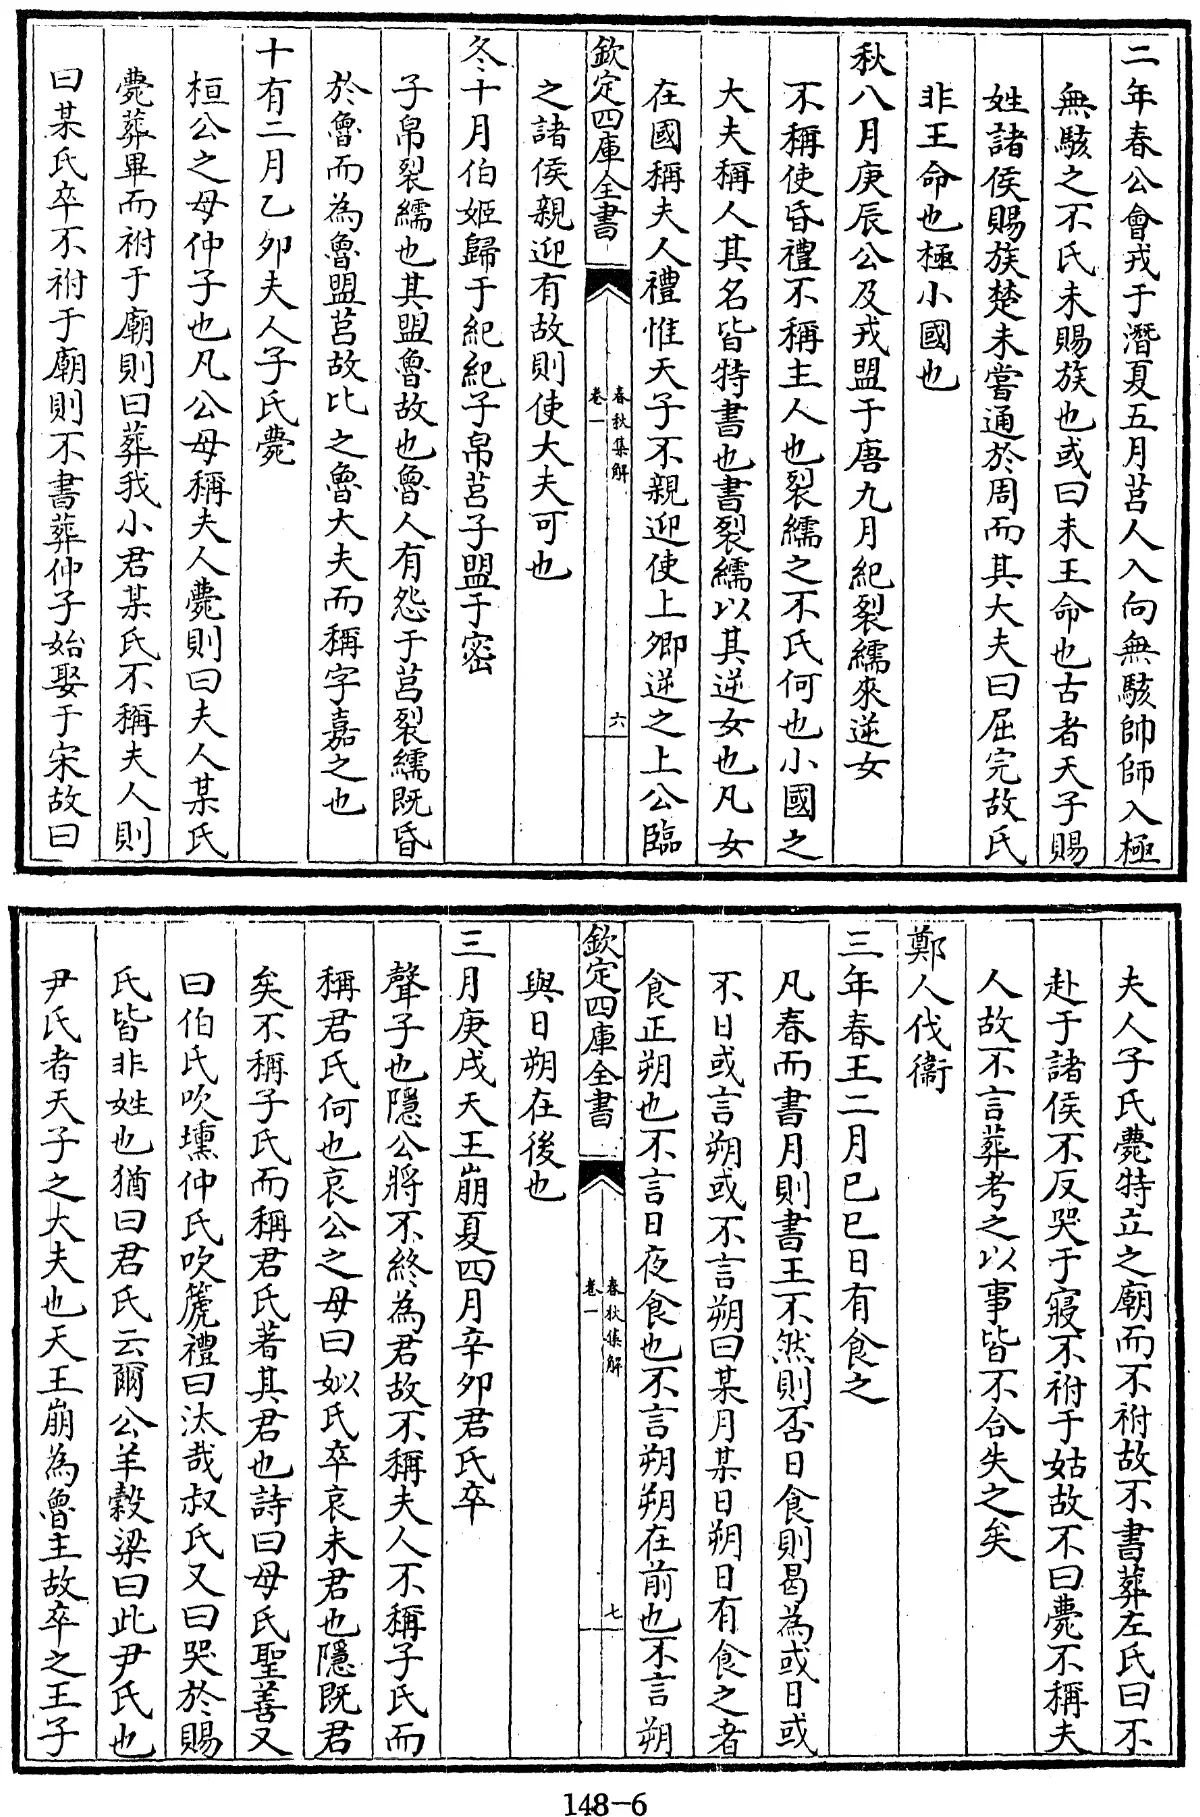 二年春公會戎于潛夏五月莒人入向無駭帥師入極
無駭之不氏未賜族也或曰未王命也古者天子賜
姓諸侯賜族楚未嘗通於周而其大夫曰屈完故氏
非王命也極小國也
秋八月庚辰公及戎盟于唐九月紀裂繻來逆女
不稱使昏禮不稱主人也裂繻之不氏何也小國之
大夫稱人其名皆特書也書裂繻以其逆女也凡女
在國稱夫人禮惟天子不親迎使上卿逆之上公臨
欽定四庫全書
春秋集解
卷一
六
之諸侯親迎有故則使大夫可也
冬十月伯姬歸于紀紀子帛莒子盟于密
子帛裂繻也其盟魯故也魯人有怨于莒裂繻既昏
於魯而為魯盟莒故比之魯大夫而稱字嘉之也
十有二月乙夘夫人子氏薨
桓公之母仲子也凡公母稱夫人薨則曰夫人某氏
薨葬畢而祔于廟則曰葬我小君某氏不稱夫人則
曰某氏卒不祔于廟則不書葬仲子始娶于宋故曰
夫人子氏薨特立之廟而不祔故不書葬左氏曰不
赴于諸侯不反哭于寢不祔于姑故不曰薨不稱夫
人故不言葬考之以事皆不合失之矣
鄭人伐衞
三年春王二月已巳日有食之
凡春而書月則書王不然則否日食則曷為或日或
不日或言朔或不言朔曰某月某日朔日有食之者
食正朔也不言日夜食也不言朔朔在前也不言朔
欽定四庫全書
春秋集解
卷一
七
與日朔在後也
三月庚戌天王崩夏四月辛夘君氏卒
聲子也隱公將不終為君故不稱夫人不稱子氏而
稱君氏何也哀公之母曰姒氏卒哀未君也隱既君
矣不稱子氏而稱君氏著其君也詩曰母氏聖善又
曰伯氏吹壎仲氏吹篪禮曰汰哉叔氏又曰哭於賜
氏皆非姓也猶曰君氏云爾公羊穀梁曰此尹氏也
尹氏者天子之大夫也天王崩為魯主故卒之王子
148-6